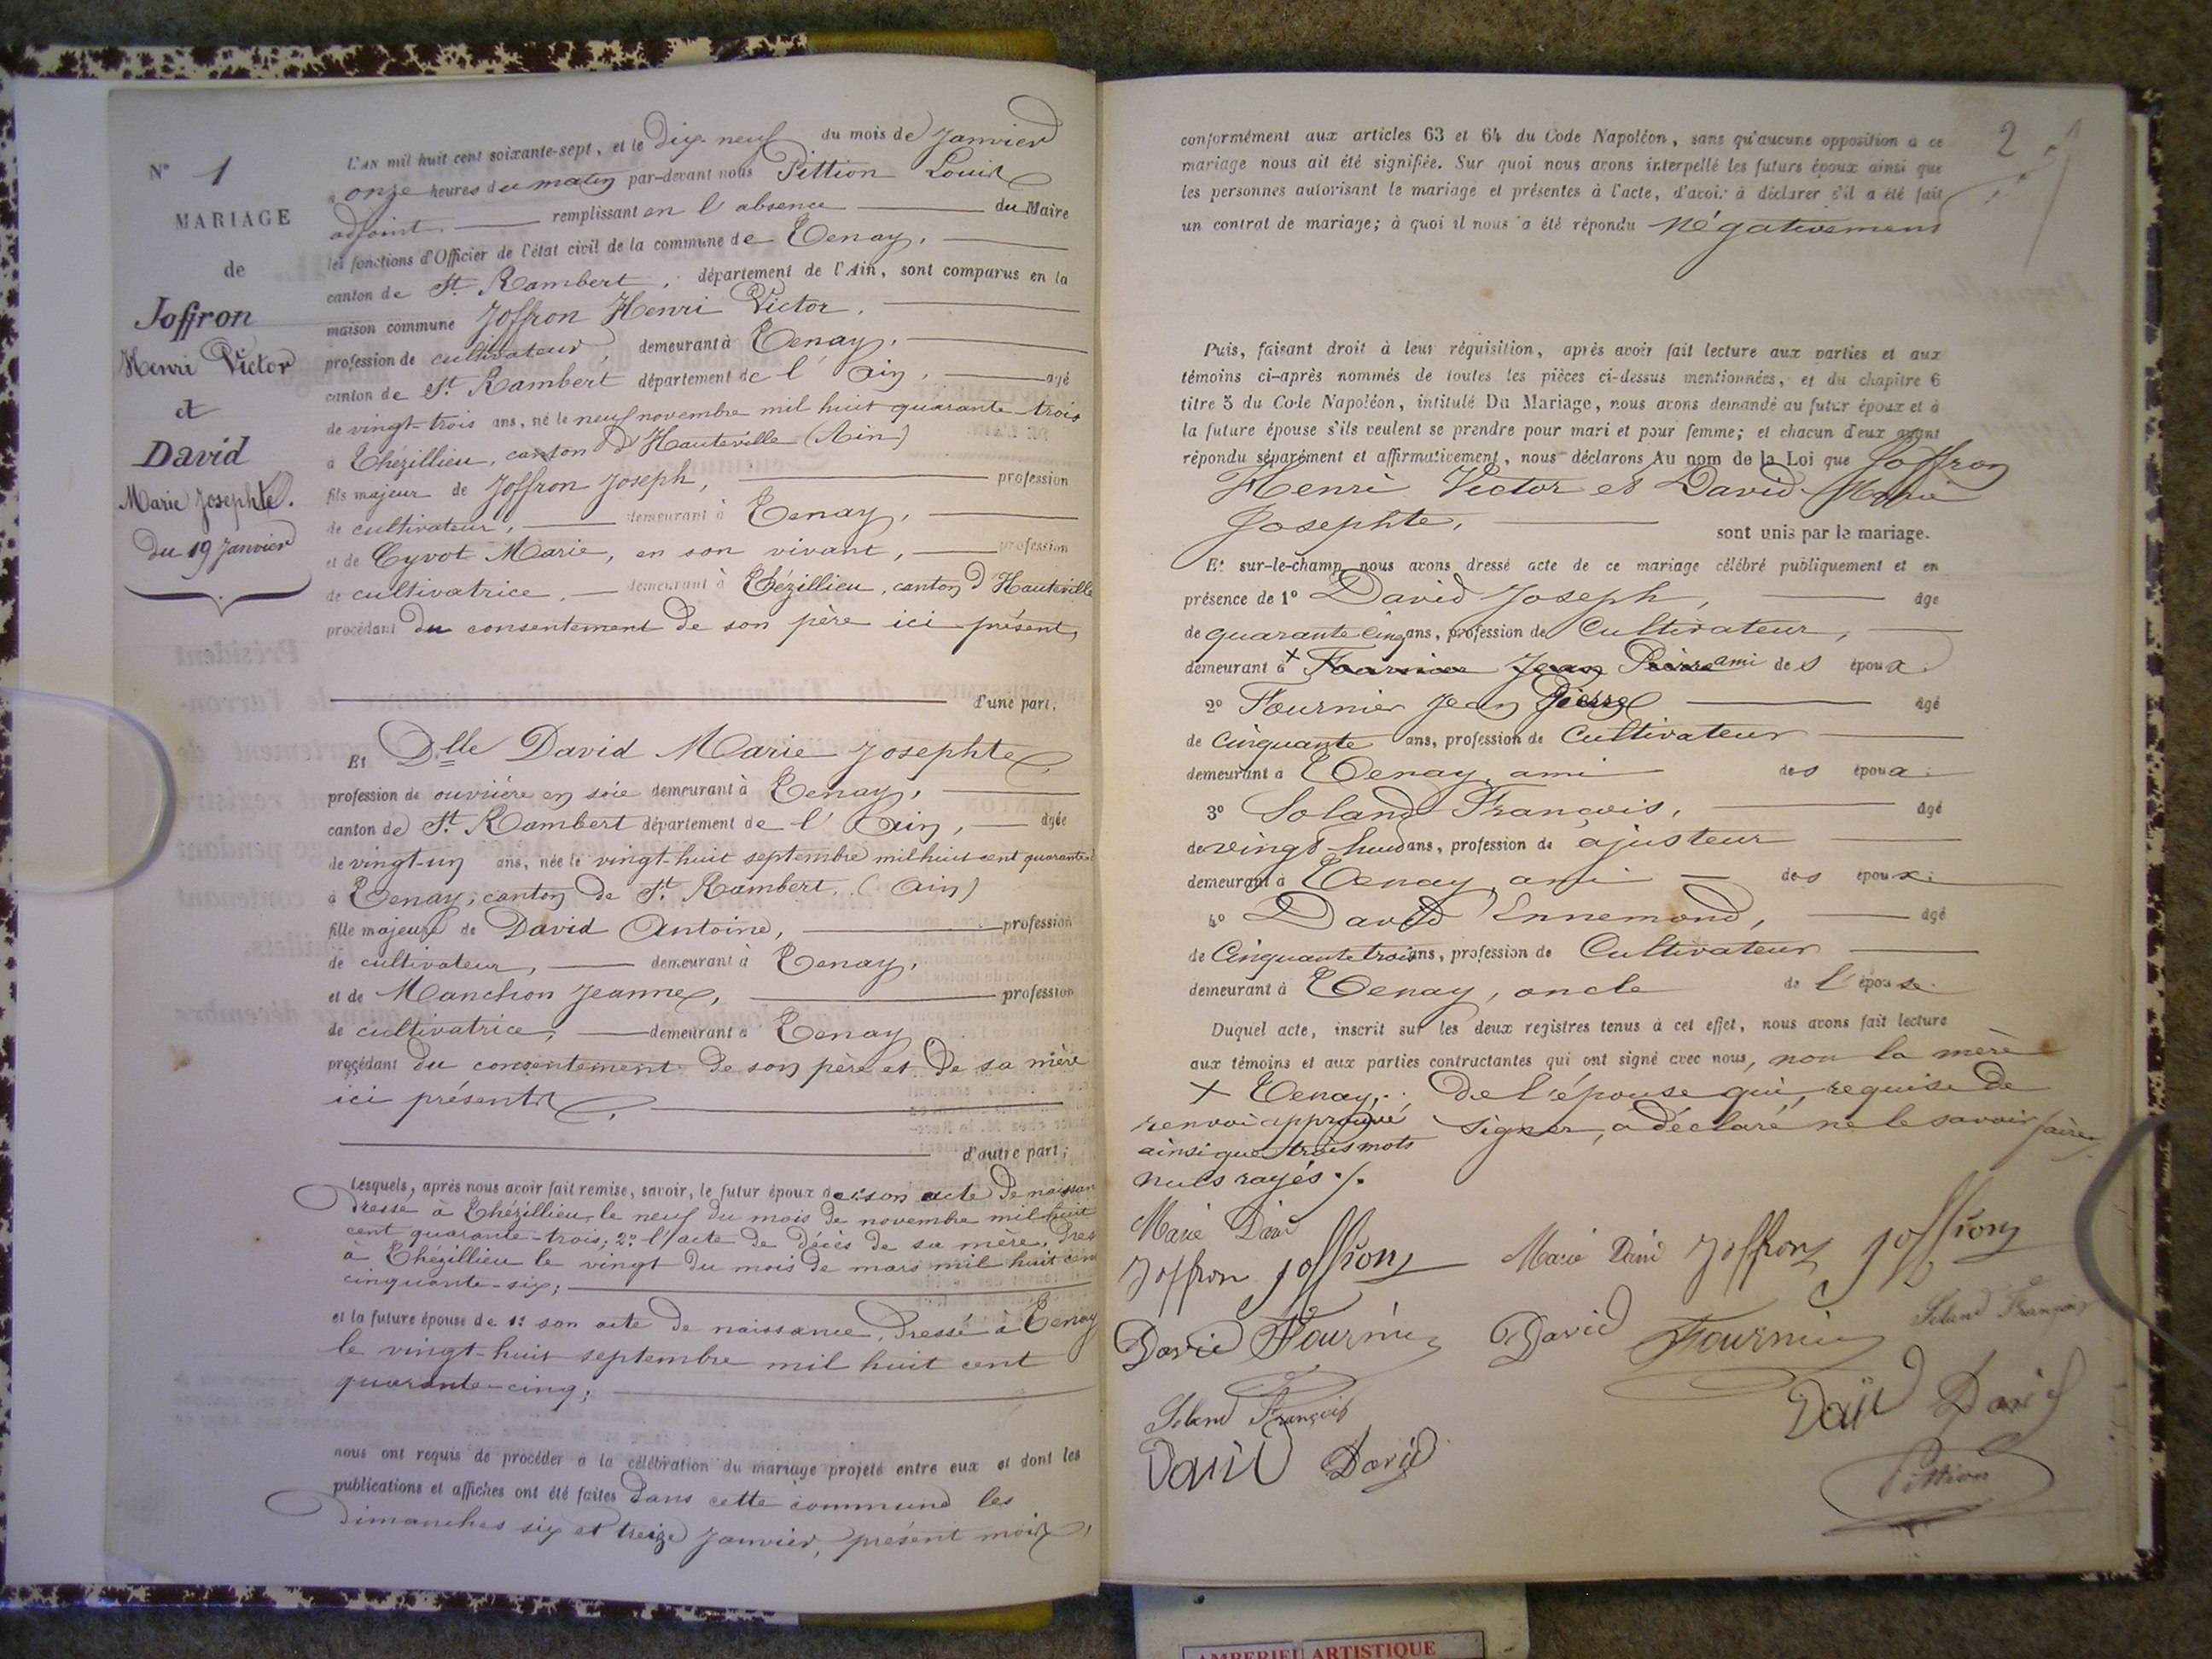 N° 1
MARIAGE
de
Joffron
Henri Victor
et
David
Marie Josephte.
du 19 Janvier
L'AN mil huit cent soixante-sept, et le Dix-neuf du mois de Janvier
à onze heures du matin par-devant nous Pittion Louis
adjoint. remplissant en l'absence du Maire
les fonctions d'Officier de l'état civil de la commune de Tenay,
canton de St. Rambert, département de l'Ain, sont comparus en la
maison commune Joffron Henri Victor.
profession de cultivateur, demeurant à Tenay,
canton de St. Rambert département de l'Ain, agé
de vingt-trois ans, né le neuf novembre mil huit quarante-trois
à Thézillieu, canton d'Hauteville (Ain)
fils majeur de Joffron Joseph, profession
de cultivateur, demeurant à Tenay,
et de Cyvot Marie, en son vivant, profession
de cultivatrice, demeurant à Thézillieu, canton d'Hauteville
procédant du consentement de son père ici présent,
d'une part.
Et Dlle David Marie Josephte,
profession de ouvrière en soie demeurant à Tenay,
canton de St. Rambert département de l'Ain, agée
de vingt-un ans, née le vingt-huit septembre mil huit cent quarante
à Tenay, canton de St. Rambert, (Ain)
fille majeure de David Antoine, profession
de cultivateur, demeurant à Tenay,
et de Manchon Jeanne, profession
de cultivatrice, demeurant à Tenay
procédant du consentement de son père et de sa mère
ici présents,
d'autre part;
Lesquels, après nous avoir fait remise, savoir, le futur époux de 1° son acte de naissan
dressé à Thézillieu, le neuf du mois de novembre mil huit
cent quarante-trois; 2° l'acte de décès de sa mère, dres
à Thézillieu le vingt du mois de mars mil huit cen
cinquante-six;
et la future épouse de 1° son acte de naissance, dressé à Tenay
le vingt-huit septembre mil huit cent
quarante-cinq;
nous ont requis de procéder à la célébration du mariage projeté entre eux et dont les
publications et affiches ont été faites dans cette commune les
dimanches six et treize Janvier, présent mois,
2
conformément aux articles 63 et 64 du Code Napoléon, sans qu'aucune opposition à ce
mariage nous ait été signifiée. Sur quoi nous avons interpellé les futurs époux ainsi que
les personnes autorisant le mariage et présentes à l'acte, d'avoir à déclarer s'il a été fait
un contrat de mariage; à quoi il nous a été répondu Négativement
Puis, faisant droit à leur réquisition, après avoir fait lecture aux parties et aux
témoins ci-après nommés de toutes les pièces ci-dessus mentionnées, et du chapitre 6
titre 5 du Code Napoléon, intitulé Du Mariage, nous avons demandé au futur époux et à
la future épouse s'ils veulent se prendre pour mari et pour femme; et chacun d'eux ayant
répondu séparément et affirmativement, nous déclarons Au nom de la Loi que Joffron
Henri Victor et David Marie
Josephte, sont unis par le mariage.
Et sur-le-champ nous avons dressé acte de ce mariage célébré publiquement et en
présence de 1° David Joseph, âge
de quarante cinq ans, profession de Cultivateur,
demeurant à + Fournier Jean Pierre ami des époux.
2° Fournier Jean Pierre âgé
de Cinquante ans, profession de Cultivateur
demeurant à Tenay, ami des époux.
3° Soland François, âgé
de vingt-huit ans, profession de ajusteur
demeurant à Tenay, ami des époux.
4° David Ennemond, âgé
de Cinquante trois ans, profession de Cultivateur
demeurant à Tenay, oncle de l'épouse.
Duquel acte, inscrit sur les deux registres tenus à cet effet, nous avons fait lecture
aux témoins et aux parties contractantes qui ont signé avec nous, non la mère
+ Tenay, de l'épouse qui, requise de
renvoi approuvé signer, a déclaré ne le savoir faire.
ainsi que trois mots
nuls rayés ./.
Marie David
Joffron Joffron Marie David Joffron Joffron
David Fournier David Fournier Soland François
Soland François David David
David David Pittion
AMBERIEU ARTISTIQUE